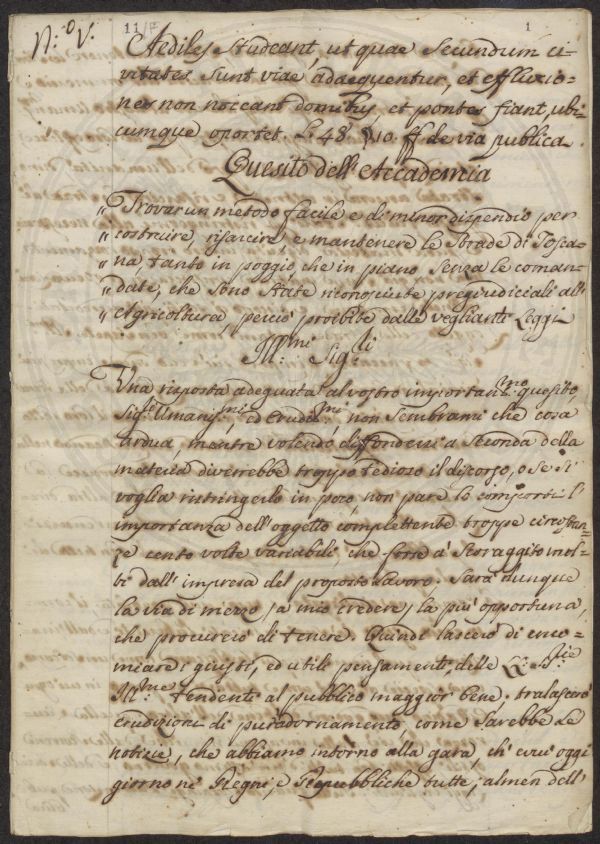 N:o V:
11/F
1
Aediles studeant, ut quae secundum ci-
vitates sunt viae adaequentur, et effluxio-
nes non noceant domibus, et pontes fiant, ubi-
cumque oportet. L. 48. §. 10. ff de via publica.
Quesito dell'Accademia
„ Trovar un metodo facile e di minor dispendio per
„ costruire, risarcire, e mantenere le strade di Tosca-
„ na tanto in poggio, che in piano senza le coman-
„ date, che sono state riconosciute pregiudiciali all'
„ Agricoltura, perciò proibite dalle veglianti Leggi
Ill:mi Sig:ri
Una risposta adequata al vostro importan:mo quesito,
Sig:ri Umanis:mi, ed Erudi:mi, non sembrami che cosa
ardua, mentre volendo diffondersi a seconda della
materia diverrebbe troppo tedioso il discorso, o se si
voglia ristringerlo in poco, non pare lo comporti l'
importanza dell'oggetto complettente troppe circostan-
ze cento volte variabili, che forse à scoraggito mol-
ti dall'impresa del proposto lavoro. Sarà dunque
la via di mezzo, a mio credere, la più opportuna,
che procurerò di tenere. Quindi lascerò di enco-
miare i giusti, ed utili pensamenti delle
Ill:me tendenti al pubblico maggior bene. tralascerò
erudizioni di puro adornamento, come sarebbe le
notizie, che abbiamo intorno alla gara, ch'evvi oggi
giorno ne' Regni, e Repubbliche tutte, almen dell'